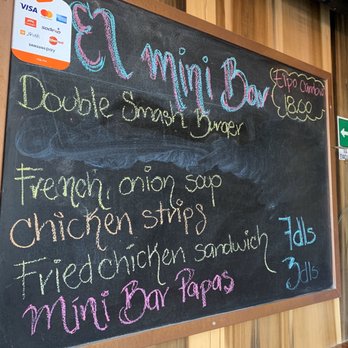 VISA
El mini Bar
Tipo Cambio
18.00
Double Smash Burger
French, onion soup
chicken strips
Fried chicken sandwich 7dls
Mini Bar Papas 3dls